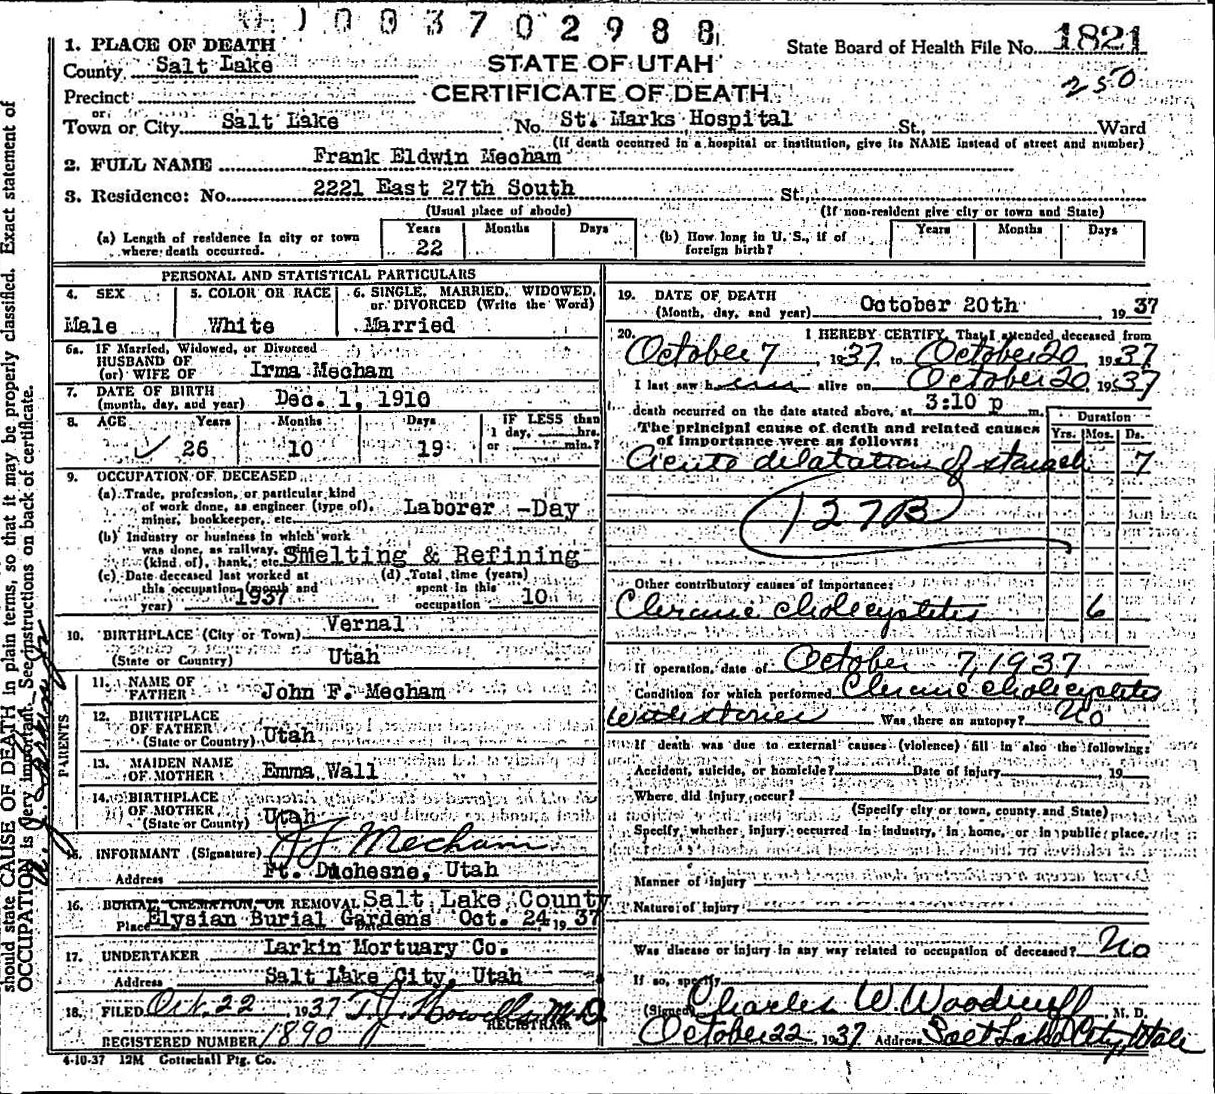 1003702988
State Board of Health File No. 1821
250
STATE OF UTAH
CERTIFICATE OF DEATH
1. PLACE OF DEATH
County Salt Lake
Precinct
or
Town or City Salt Lake No. St. Marks Hospital St., Ward
(If death occurred in a hospital or institution, give its NAME instead of street and number)
2. FULL NAME Frank Eldwin Mecham
3. Residence: No. 2221 East 27th South St.,
(Usual place of abode) (If non-resident give city or town and State)
(a) Length of residence in city or town where death occurred. Years 22 Months Days
(b) How long in U. S., if of foreign birth? Years Months Days
PERSONAL AND STATISTICAL PARTICULARS
4. SEX Male
5. COLOR OR RACE White
6. SINGLE, MARRIED, WIDOWED, or DIVORCED (Write the Word) Married
6a. IF Married, Widowed, or Divorced
HUSBAND OF
(or) WIFE OF Irma Mecham
7. DATE OF BIRTH
(month, day, and year) Dec. 1, 1910
8. AGE Years 26 Months 10 Days 19 IF LESS than 1 day, hrs. or min.?
9. OCCUPATION OF DECEASED
(a) Trade, profession, or particular kind of work done, as engineer (type of), miner, bookkeeper, etc. Laborer - Day
(b) Industry or business in which work was done, as railway, (kind of), bank, etc. Smelting & Refining
(c) Date deceased last worked at this occupation (month and year) 1937
(d) Total time (years) spent in this occupation 10
10. BIRTHPLACE (City or Town) Vernal
(State or Country) Utah
PARENTS
11. NAME OF FATHER John F. Mecham
12. BIRTHPLACE OF FATHER (State or Country) Utah
13. MAIDEN NAME OF MOTHER Emma Wall
14. BIRTHPLACE OF MOTHER (State or Country) Utah
15. INFORMANT (Signature) J F Mecham
Address Ft. Duchesne, Utah
16. BURIAL, CREMATION, OR REMOVAL Salt Lake County
Place Elysian Burial Gardens Date Oct. 24, 1937
17. UNDERTAKER Larkin Mortuary Co.
Address Salt Lake City, Utah
18. FILED Oct. 22, 1937 T. J. Howells M.D.
REGISTRAR
REGISTERED NUMBER 1890
4-10-37 12M Gottschall Ptg. Co.
19. DATE OF DEATH
(Month, day, and year) October 20th 1937
20. I HEREBY CERTIFY, That I attended deceased from
October 7, 1937 to October 20 1937
I last saw him alive on October 20 1937
death occurred on the date stated above, at 3:10 p m.
The principal cause of death and related causes of importance were as follows:
Duration
Yrs. Mos. Ds.
Acute dilatation of stomach 7
127B
Other contributory causes of importance:
Chronic cholecystitis 6
If operation, date of October 7, 1937
Condition for which performed Chronic cholecystitis
with stones Was there an autopsy? No
If death was due to external causes (violence) fill in also the following:
Accident, suicide, or homicide? Date of injury, 19
Where did injury occur?
(Specify city or town, county and State)
Specify whether injury occurred in industry, in home, or in public place.
Manner of injury
Nature of injury
Was disease or injury in any way related to occupation of deceased? No
If so, specify
(Signed) Charles W. Woodruff, M. D.
October 22, 1937 Address Salt Lake City, Utah
should state CAUSE OF DEATH in plain terms, so that it may be properly classified. Exact statement of
OCCUPATION is very important. See instructions on back of certificate.